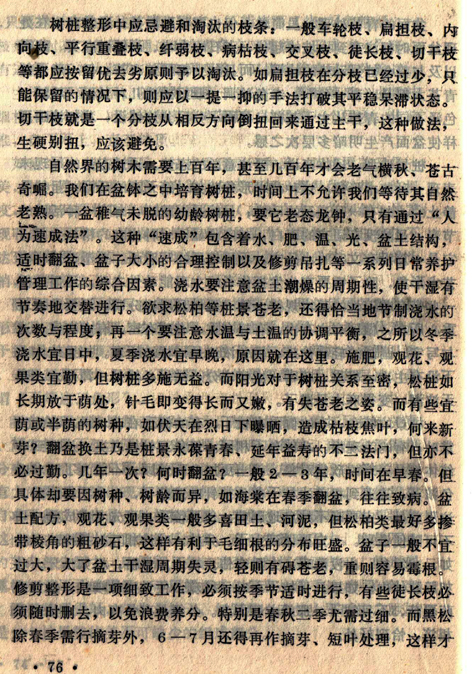 树桩整形中应忌避和淘汰的枝条：一般车轮枝、扁担枝、内
向枝、平行重叠枝、纤弱枝、病枯枝、交叉枝、徒长枝、切干枝
等都应按留优去劣原则予以淘汰。如扁担枝在分枝已经过少，只
能保留的情况下，则应以一提一抑的手法打破其平稳呆滞状态。
切干枝就是一个分枝从相反方向倒扭回来通过主干，这种做法，
生硬别扭，应该避免。
自然界的树木需要上百年，甚至几百年才会老气横秋、苍古
奇崛。我们在盆钵之中培育树桩，时间上不允许我们等待其自然
老熟。一盆稚气未脱的幼龄树桩，要它老态龙钟，只有通过“人
为速成法”。这种“速成”包含着水、肥、温、光、盆土结构，
适时翻盆、盆子大小的合理控制以及修剪吊扎等一系列日常养护
管理工作的综合因素。浇水要注意盆土潮燥的周期性，使干湿有
节奏地交替进行。欲求松柏等桩景苍老，还得恰当地节制浇水的
次数与程度，再一个要注意水温与土温的协调平衡，之所以冬季
浇水宜日中，夏季浇水宜早晚，原因就在这里。施肥，观花、观
果类宜勤，但树桩多施无益。而阳光对于树桩关系至密，松桩如
长期放于荫处，针毛即变得长而又嫩，有失苍老之姿。而有些宜
荫或半荫的树种，如伏天在烈日下曝晒，造成枯枝焦叶，何来新
芽？翻盆换土乃是桩景永葆青春、延年益寿的不二法门，但亦不
必过勤。几年一次？何时翻盆？一般2—3年，时间在早春。但
具体却要因树种、树龄而异，如海棠在春季翻盆，往往致病。盆
土配方，观花、观果类一般多喜田土、河泥，但松柏类最好多掺
带棱角的粗砂石，这样有利于毛细根的分布旺盛。盆子一般不宜
过大，大了盆土干湿周期失灵，轻则有碍苍老，重则容易霉根。
修剪整形是一项细致工作，必须按季节适时进行，有些徒长枝必
须随时删去，以免浪费养分。特别是春秋二季尤需过细。而黑松
除春季需行摘芽外，6—7月还得再作摘芽、短叶处理，这样才
·76·